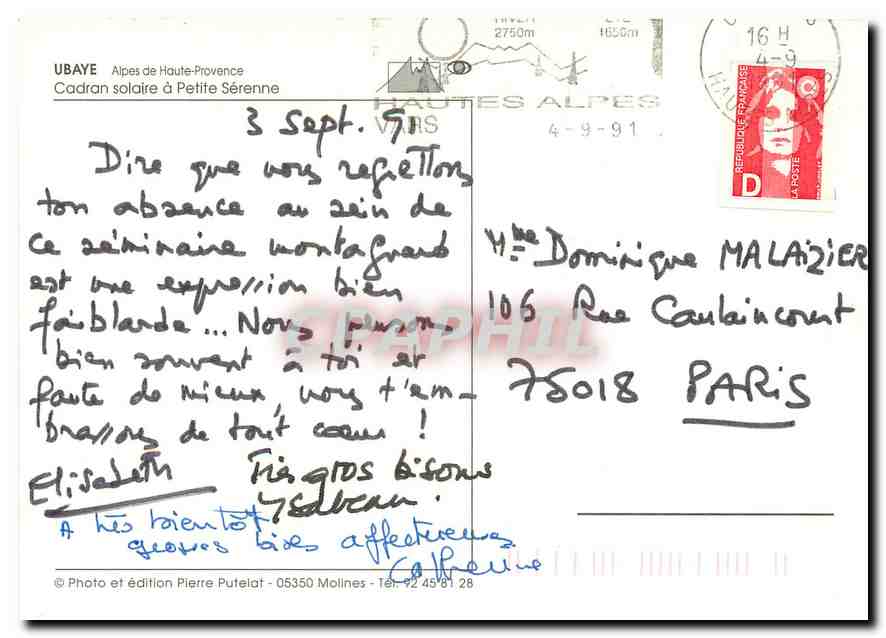 UBAYE Alpes de Haute-Provence
Cadran solaire à Petite Sérenne
HIVER ETE
2750m 1650m
HAUTES ALPES
VARS
4-9-91
16 H
4-9
REPUBLIQUE FRANÇAISE
LA POSTE
D
3 Sept. 91
Dire que nous regrettons
ton absence au sein de
ce séminaire montagnard
est une expression bien
faiblarde... Nous pensons
bien souvent à toi et
faute de mieux, nous t'em-
brassons de tout coeur !
Elisabeth Très gros bisous
Ysabeau.
A très bientôt
grosses bises affectueuses
Catherine
Mme Dominique MALAIZIER
106 Rue Caulaincourt
75018 PARIS
CPAPHIL
© Photo et édition Pierre Putelat - 05350 Molines - Tél. 92 45 81 28